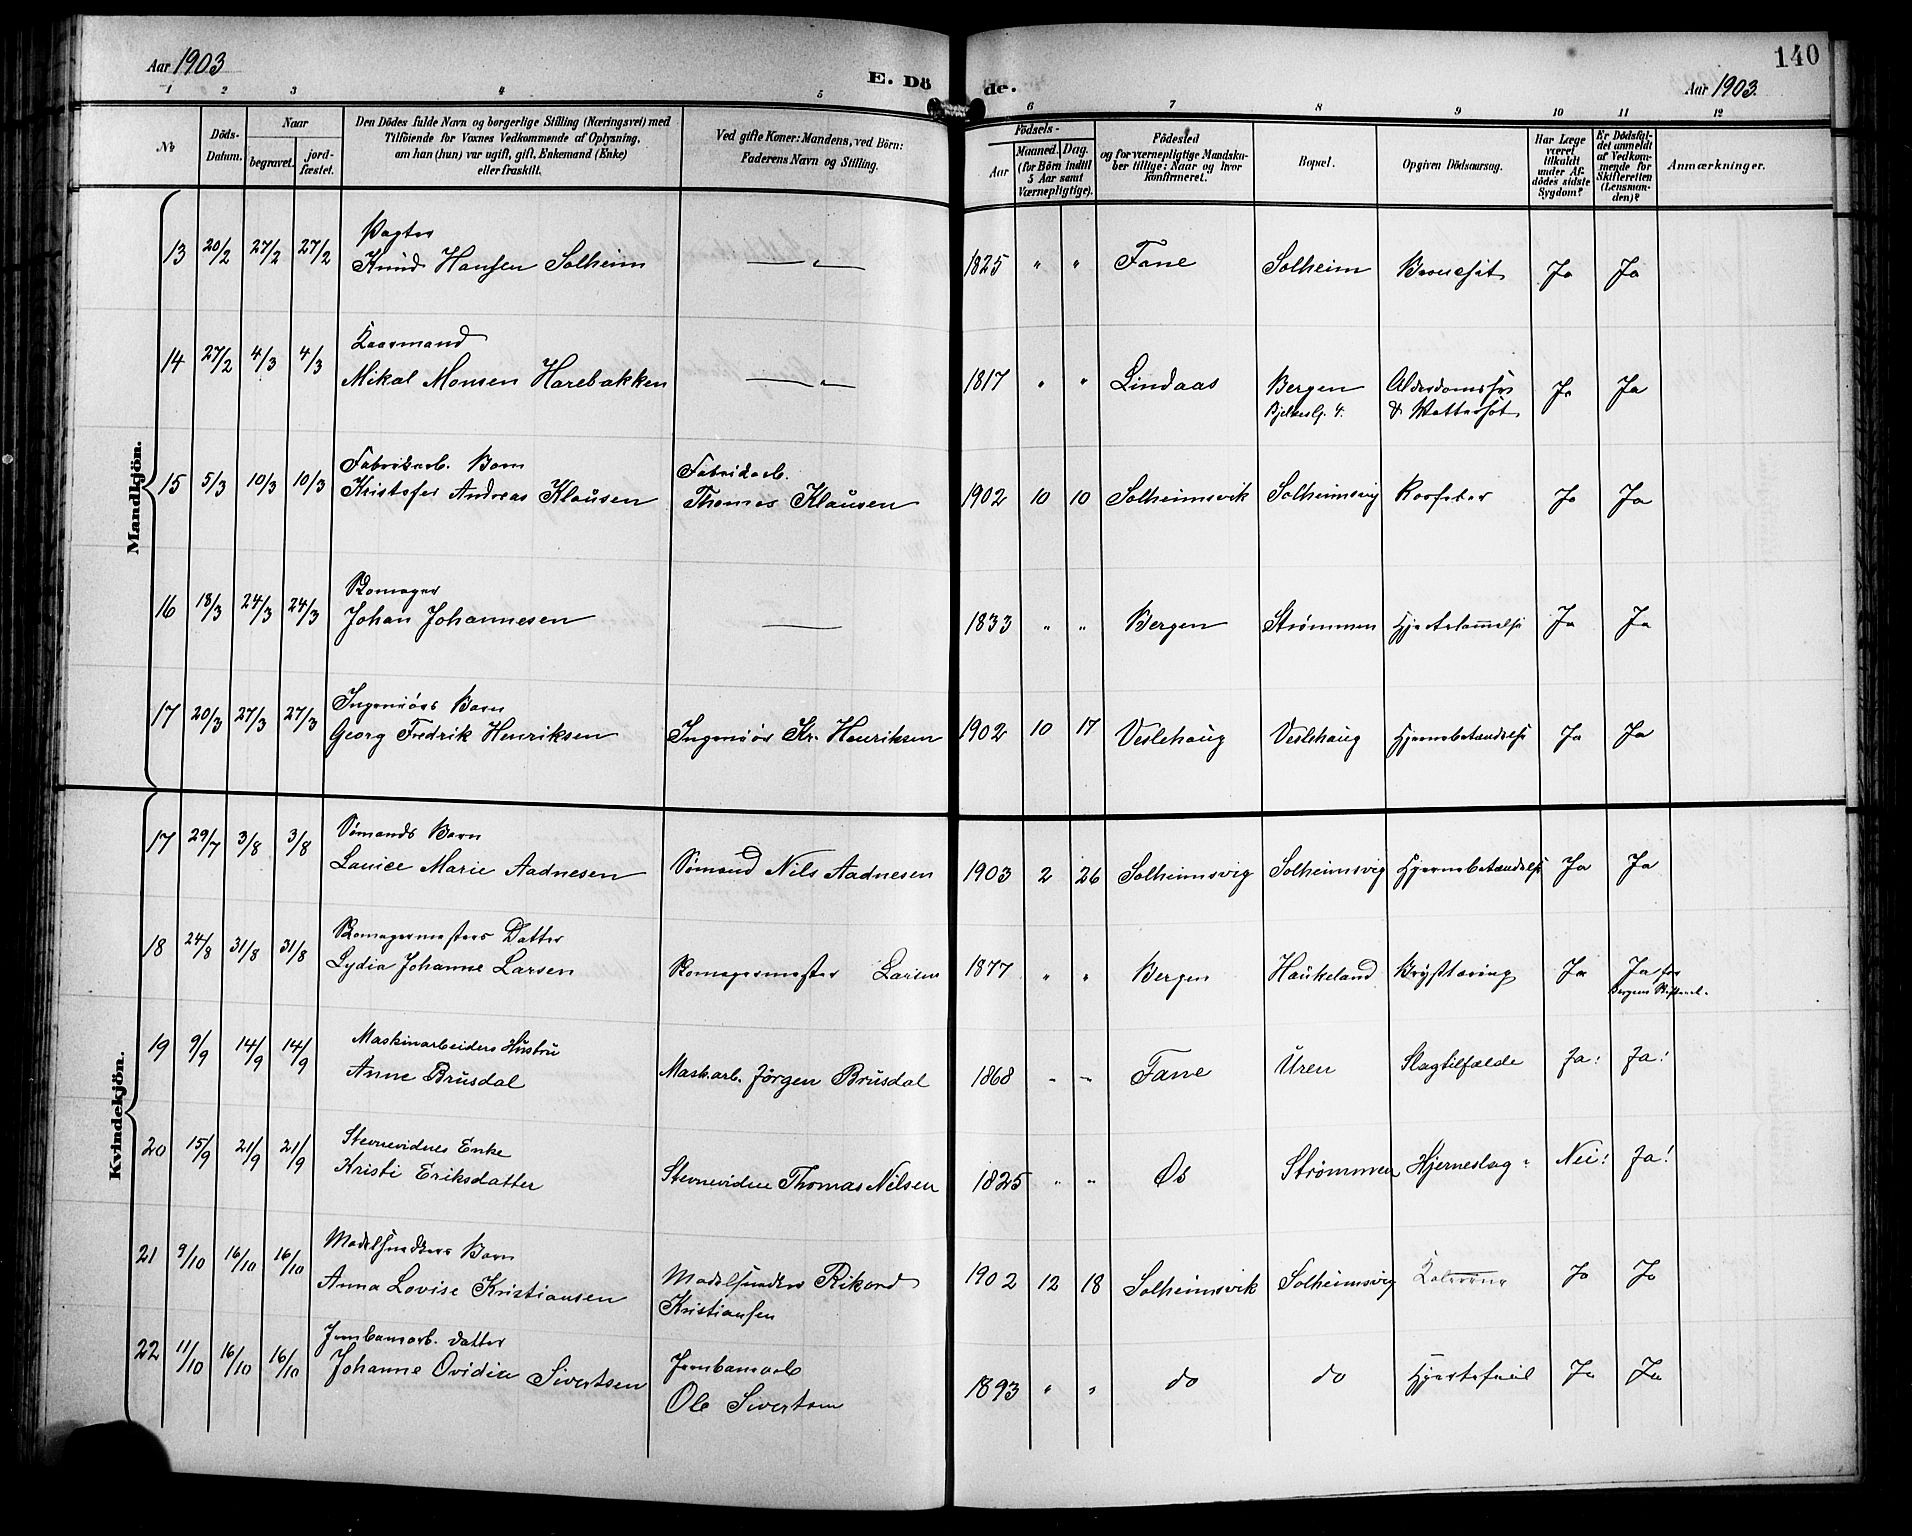 Aar 1903
E. Döde.
140
Aar 1903.
1 2 3 4 5 6 7 8 9 10 11 12
No
Döds-Datum.
Naar
begravet.
jordfæstet.
Den Dödes fulde Navn og borgerlige Stilling (Næringsvei) med
Tilföiende for Voxnes Vedkommende af Oplysning,
om han (hun) var ugift, gift, Enkemand (Enke)
eller fraskilt.
Ved gifte Koner: Mandens, ved Börn:
Faderens Navn og Stilling.
Födsels-
Aar
Maaned. Dag.
(for Börn indtil
5 Aar samt
Værnepligtige).
Födested
og for værnepligtige Mandska-
ber tillige: Naar og hvor
konfirmeret.
Bopæl.
Opgiven Dödsaarsag.
Har Læge
været
tilkaldt
under Af-
dödes sidste
Sygdom?
Er Dödsfal-
det anmeldt
af Vedkom-
mende for
Skifteretten
(Lensman-
den)?
Anmærkninger.
Mandkjön.
Pagter
13 20/2 27/2 27/2 Knud Hansen Solheim — " — 1825 " " Fane Solheim Ja Ja
14 27/2 4/3 4/3 Mikal Monsen Harebakken — " — 1817 " " Lindaas Bergen Ja Ja
4. & Vattersot
Fabrikarb. Barn Fabrikarb.
15 5/3 10/3 10/3 Kristofer Andreas Klausen Thomas Klausen 1902 10 10 Solheimsvik Solheimsvig Ja Ja
Skomager
16 18/3 24/3 24/3 Johan Johannesen — 1833 " " Bergen Strømmen Hjertelammelse Ja Ja
Ingeniörs Barn
17 20/3 27/3 27/3 Georg Fredrik Henriksen Ingeniör Kr. Henriksen 1902 10 17 Veslehaug Veslehaug Hjernebetændelse Ja Ja
Kvindekjön.
Sømands Barn
17 29/7 3/8 3/8 Lauice Marie Aadnesen Sømand Nils Aadnesen 1903 2 26 Solheimsvig Solheimsvig Hjernebetændelse Ja Ja
Skomagermesters Datter
18 24/8 31/8 31/8 Lydia Johanne Larsen Skomagermester Larsen 1877 " " Bergen Haukeland Brysttæring Ja Ja for
Bergens
Maskinarbeiders Hustru
19 9/9 14/9 14/9 Anne Brusdal Mask.arb. Jörgen Brusdal 1868 " " Fane Uren Slagtilfælde Ja! Ja!
Stevnevidnes Enke
20 15/9 21/9 21/9 Kristi Eriksdatter Stevnevidne Thomas Nilsen 1825 " " Os Strømmen Hjerneslag Nei! Ja!
Modelsnedkers Barn
21 9/10 16/10 16/10 Anna Lovise Kristiansen Modelsnedker Rikard 1902 12 18 Solheimsvik Solheimsvig Kolerine Ja Ja
Kristiansen
Jernbanearb. datter
22 11/10 16/10 16/10 Johanne Ovidia Sivertsen Jernbanearb 1893 " " do do Hjertefeil Ja Ja
Ole Sivertsen